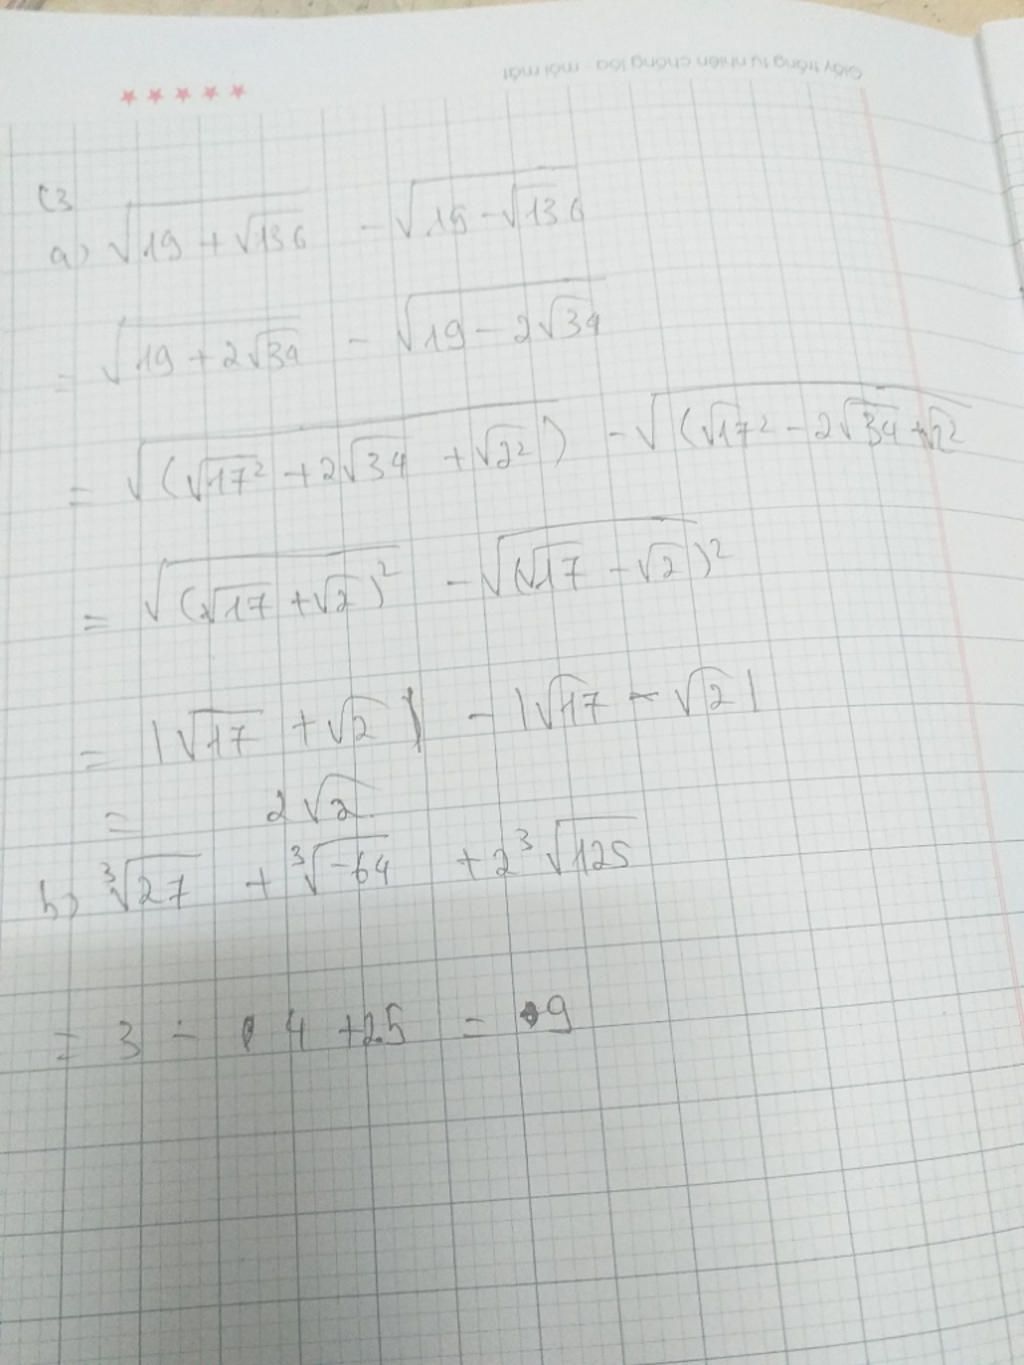 Giấy trắng tự nhiên chống lóa - mỏi mắt
C3
a) √(19 + √136) - √(19 - √136)
= √(19 + 2√34) - √(19 - 2√34)
= √((√17² + 2√34 + √2²)) - √((√17² - 2√34 + √2²
= √((√17 + √2)²) - √((√17 - √2)²)
= |√17 + √2| - |√17 - √2|
= 2√2
b) ³√27 + ³√-64 + 2³√125
= 3 - 4 + 2.5 = 9